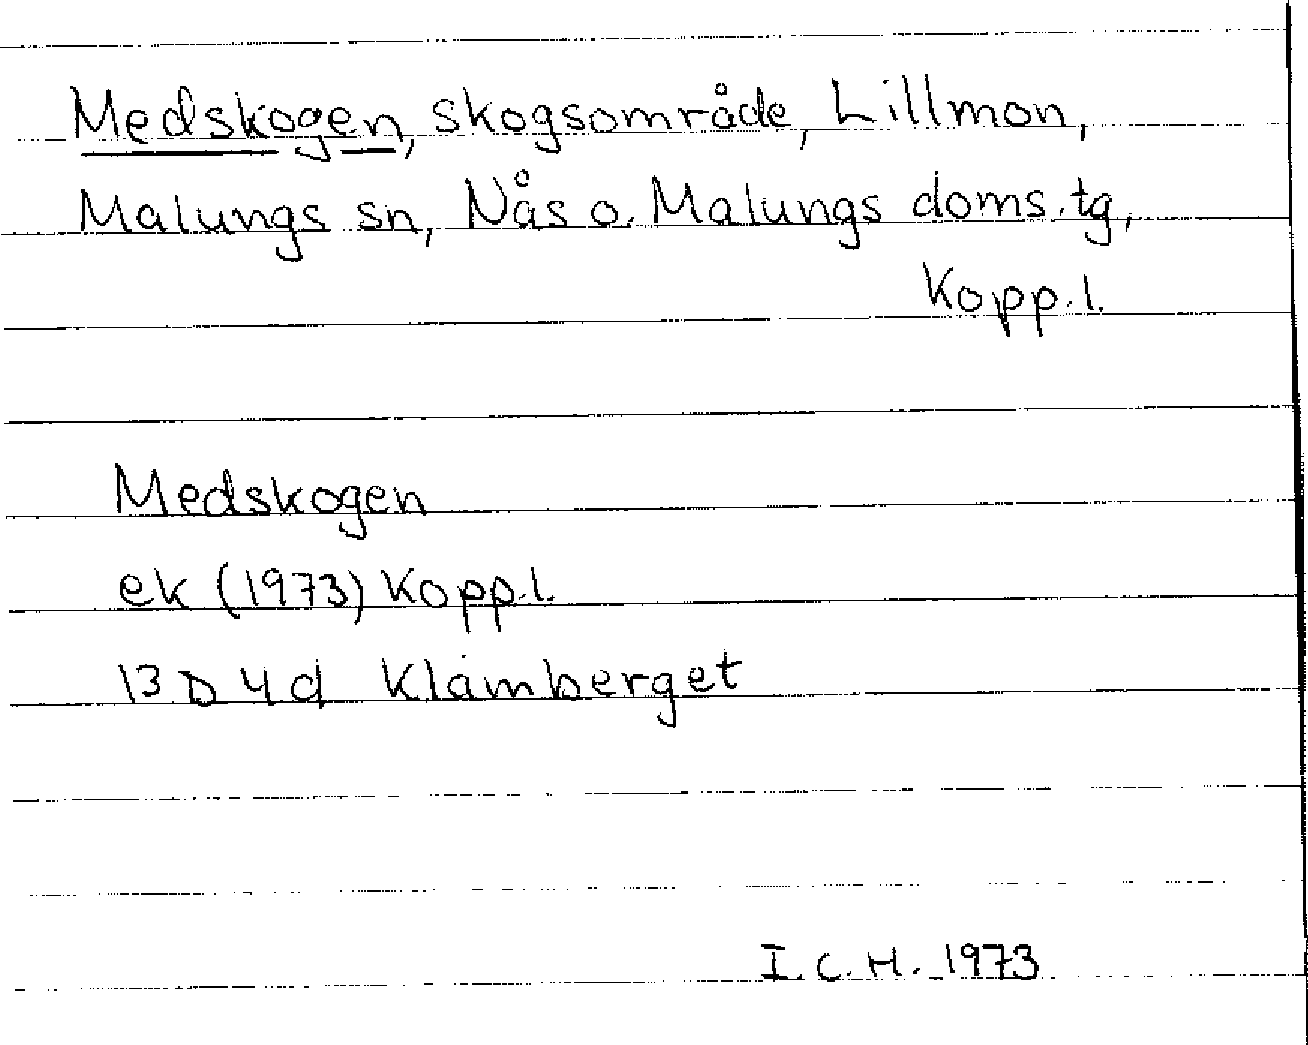 Medskogen, skogsområde, Lillmon,
Malungs sn, Nås o. Malungs doms.tg,
Kopp.l.
Medskogen
ek (1973) Kopp.l.
13 D 4d Klämberget
I.C.H. 1973